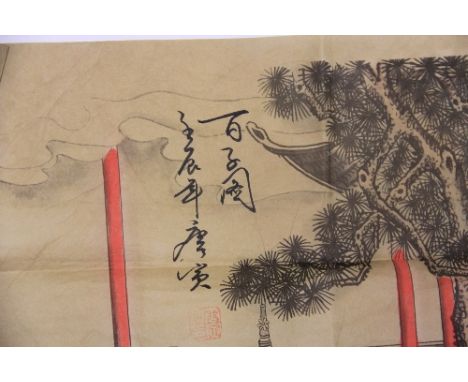 百子图
壬辰年唐寅